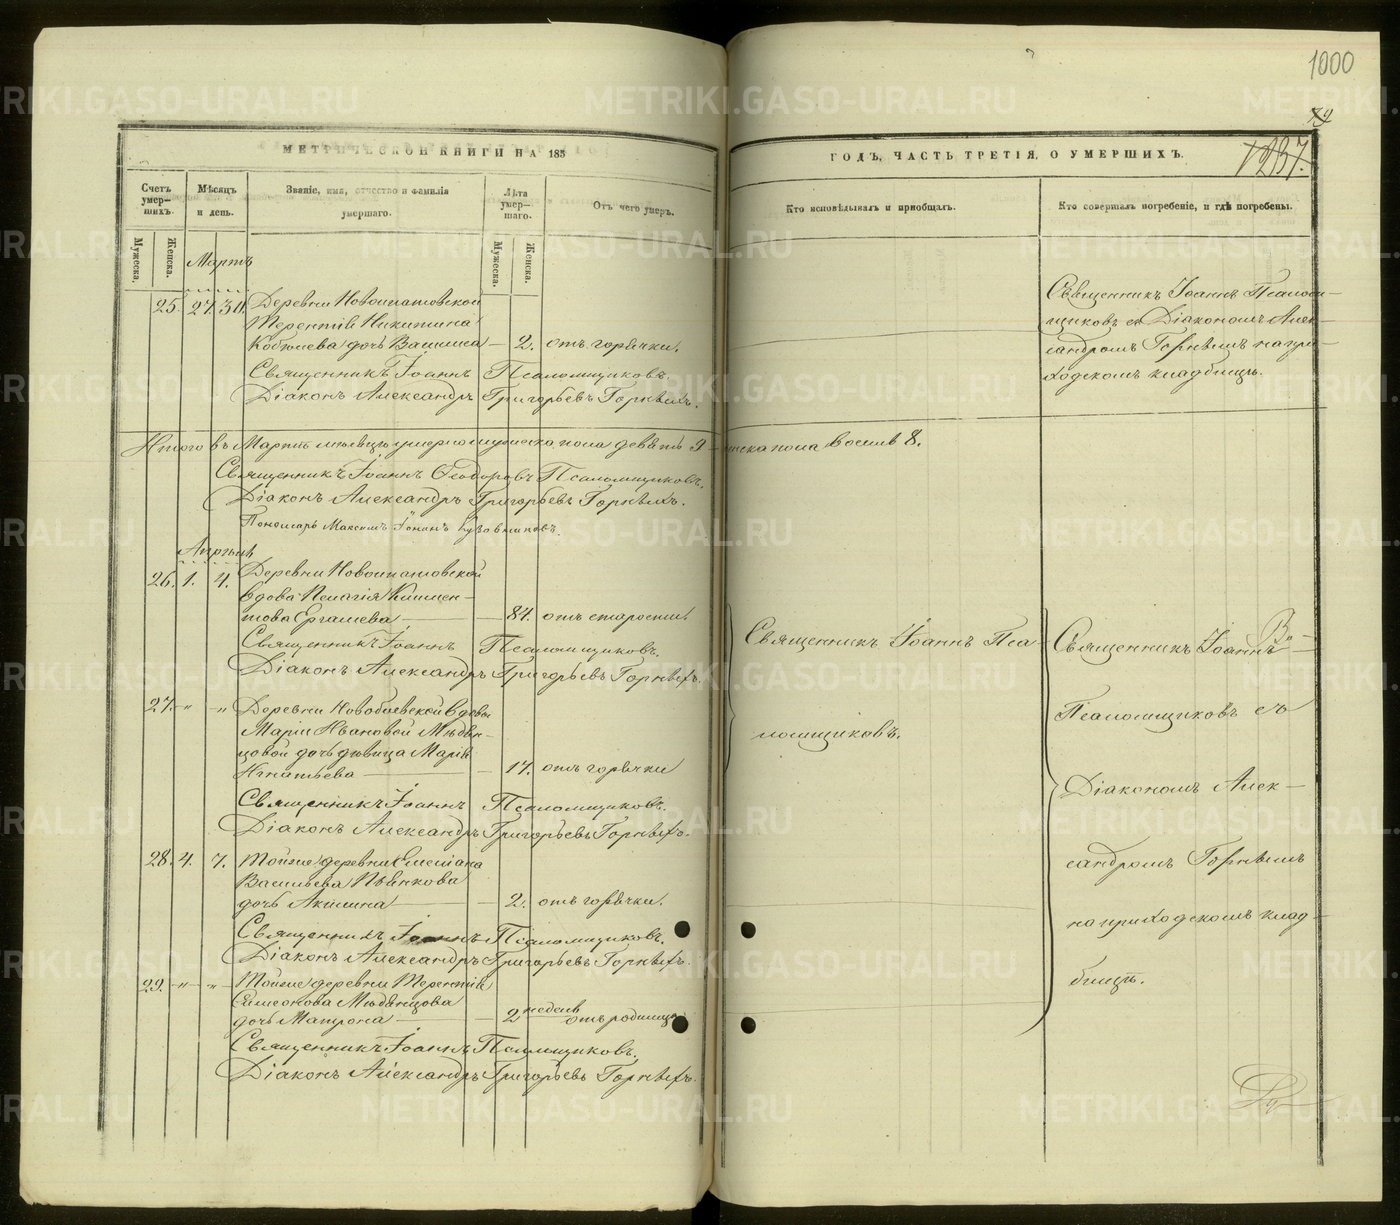 1000
79
1237.
МЕТРИЧЕСКОЙ КНИГИ НА 185
ГОДЪ, ЧАСТЬ ТРЕТІЯ, О УМЕРШИХЪ.
Счетъ умер-шихъ.
Мѣсяцъ и день.
Званіе, имя, отчество и фамилія умершаго.
Лѣта умер-шаго.
Отъ чего умеръ.
Кто исповѣдывалъ и пріобщалъ.
Кто совершалъ погребеніе, и гдѣ погребены.
Мужеска.
Женска.
Мужеска.
Женска.
Мартъ
25. 27. 30. Деревни Новоипатовской
Терентія Никитина
дочь Васлиса — 2. отъ горячки.
Священникъ Іоаннъ Псаломщиковъ.
Діаконъ Александръ Григорьевъ Горныхъ.
Священникъ Іоаннъ Псалом-
щиковъ съ Діакономъ Алек-
сандромъ Горныхъ на при-
ходскомъ кладбищѣ.
Итого въ Мартѣ мѣсяцѣ умерло мужеска пола девять 9 женска пола восемь 8.
Священникъ Іоаннъ Ѳеодоровъ Псаломщиковъ.
Діаконъ Александръ Григорьевъ Горныхъ.
Пономарь Максимъ Іонинъ
Апрѣль
26. 1. 4. Деревни Новоипатовской
вдова Пелагія Климен-
това Ергашева — 84. отъ старости.
Священникъ Іоаннъ Псаломщиковъ.
Діаконъ Александръ Григорьевъ Горныхъ.
27. " " Деревни Новобаевской вдовы
Маріи Ивановой Мѣдян-
цовой дочь дѣвица Марія
Игнатьева — 17. отъ горячки
Священникъ Іоаннъ Псаломщиковъ.
Діаконъ Александръ Григорьевъ Горныхъ.
28. 4. 7. Тойже деревни Емеліана
Васильева Пьянкова
дочь Акилина — 2. отъ горячки.
Священникъ Іоаннъ Псаломщиковъ.
Діаконъ Александръ Григорьевъ Горныхъ.
29. " " Тойже деревни Терентія
Симеонова Мѣдянцова
дочь Матрона — 2 недель отъ родимца
Священникъ Іоаннъ Псаломщиковъ.
Діаконъ Александръ Григорьевъ Горныхъ.
Священникъ Іоаннъ Пса-
ломщиковъ.
Священникъ Іоаннъ
Псаломщиковъ съ
Діакономъ Алек-
сандромъ Горныхъ
на приходскомъ клад-
бищѣ.
METRIKI.GASO-URAL.RU